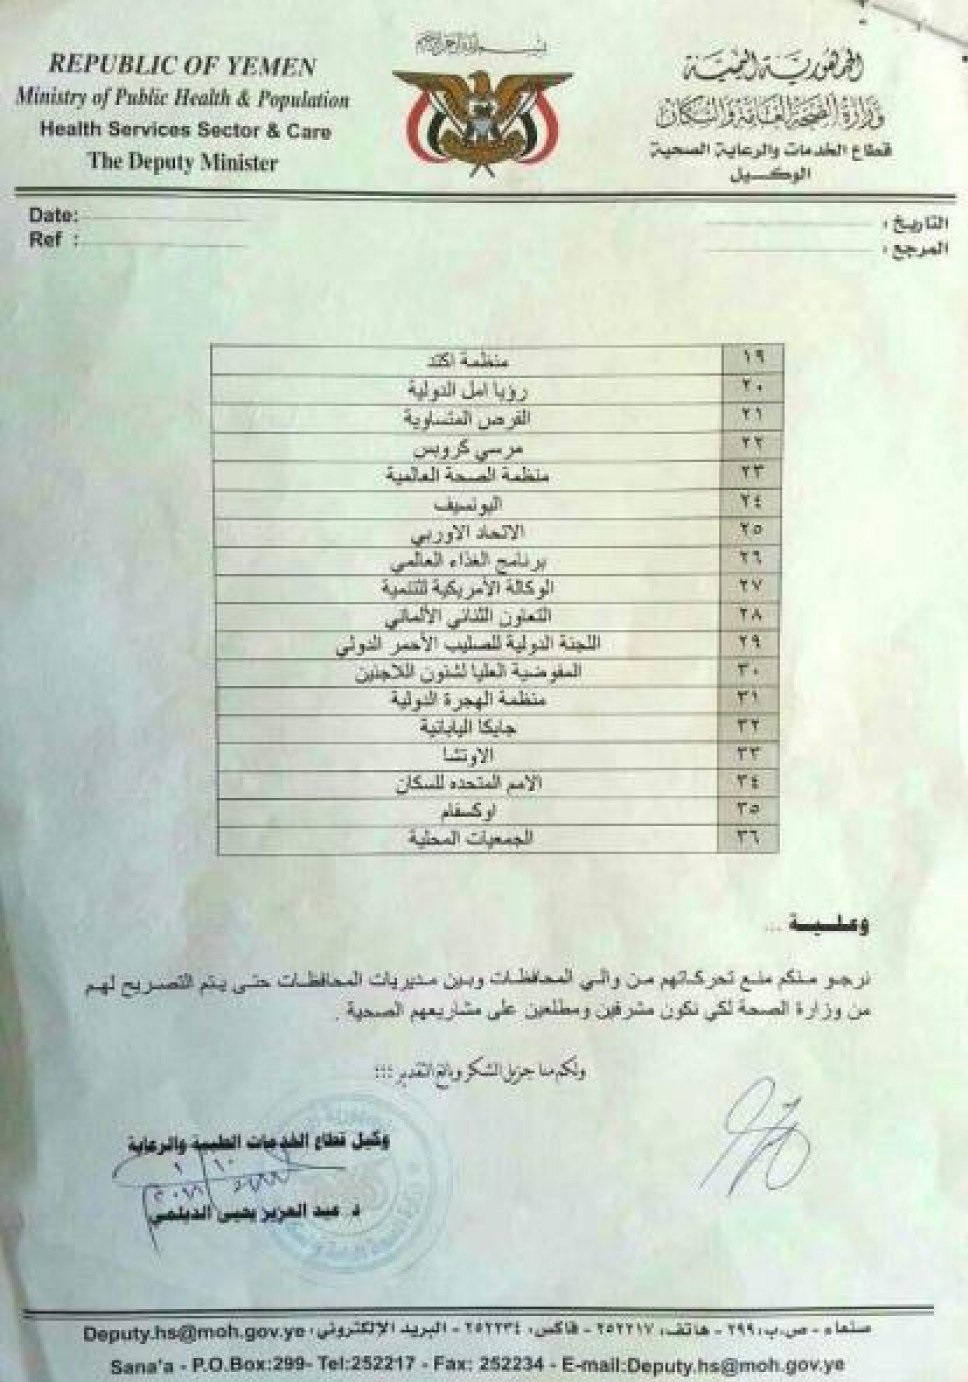 بسم الله الرحمن الرحيم
REPUBLIC OF YEMEN
Ministry of Public Health & Population
Health Services Sector & Care
The Deputy Minister
الجمهورية اليمنية
وزارة الصحة العامة والسكان
قطاع الخدمات والرعاية الصحية
الوكيل
Date:
Ref :
التاريخ :
المرجع :
١٩ منظمة اكتد
٢٠ رؤيا امل الدولية
٢١ الفرص المتساوية
٢٢ مرسي كروبس
٢٣ منظمة الصحة العالمية
٢٤ اليونسيف
٢٥ الاتحاد الاوربي
٢٦ برنامج الغذاء العالمي
٢٧ الوكالة الأمريكية للتنمية
٢٨ التعاون الثنائي الألماني
٢٩ اللجنة الدولية للصليب الأحمر الدولي
٣٠ المفوضية العليا لشئون اللاجئين
٣١ منظمة الهجرة الدولية
٣٢ جايكا اليابانية
٣٣ الاوتشا
٣٤ الامم المتحده للسكان
٣٥ اوكسفام
٣٦ الجمعيات المحلية
وعلـيـة ...
نرجو منكم منع تحركاتهم من والي المحافظات وبين مديريات المحافظات حتى يتم التصريح لهم
من وزارة الصحة لكي نكون مشرفين ومطلعين على مشاريعهم الصحية .
ولكم منا جزيل الشكر وبالغ التقدير :::
وكيل قطاع الخدمات الطبية والرعاية
د. عبد العزيز يحيى الديلمي
صنعاء - ص.ب: ٢٩٩ - هاتف: ٢٥٢٢١٧ - فاكس: ٢٥٢٢٣٤ - البريد الإلكتروني: Deputy.hs@moh.gov.ye
Sana'a - P.O.Box:299- Tel:252217 - Fax: 252234 - E-mail:Deputy.hs@moh.gov.ye